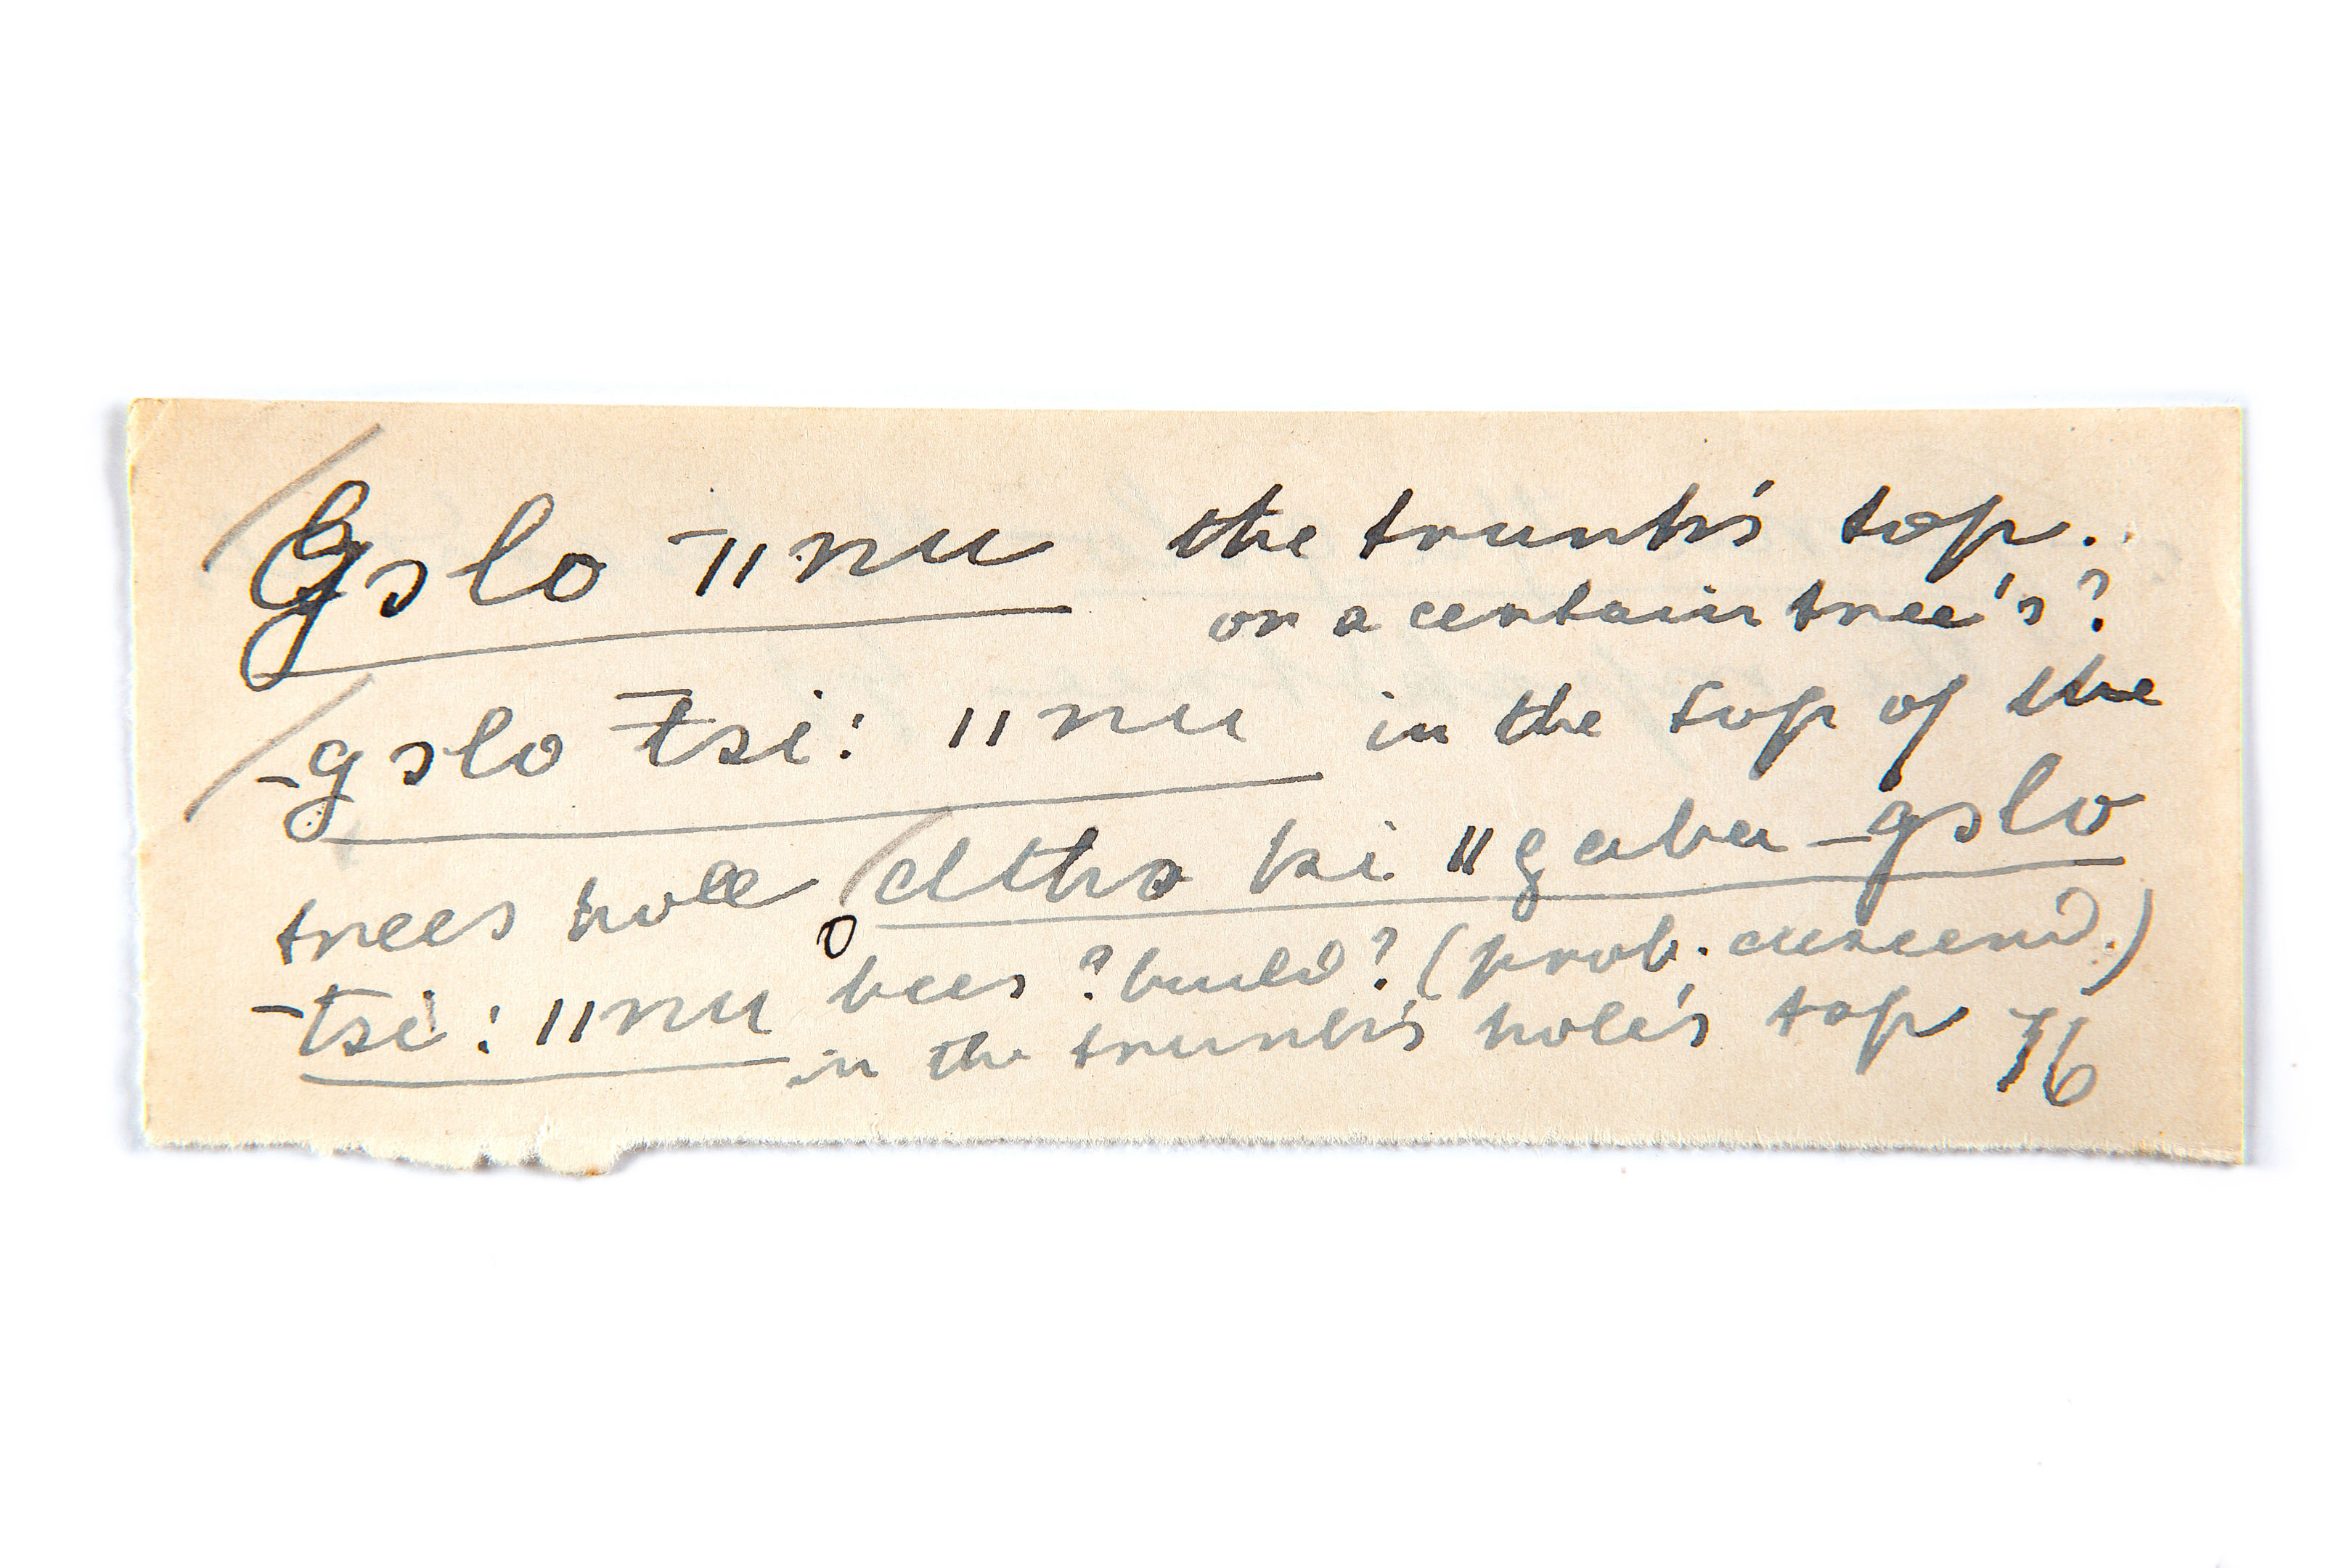 Gslo ‾ǁnu the trunk's top.
or a certain tree's?
_gslo ‾tsi: ǁnu in the top of the
trees hole dtho ki ǁgaba _gslo
‾tsi: ǁnu bees ? build? (prob. descend.)
in the trunk's hole's top 76